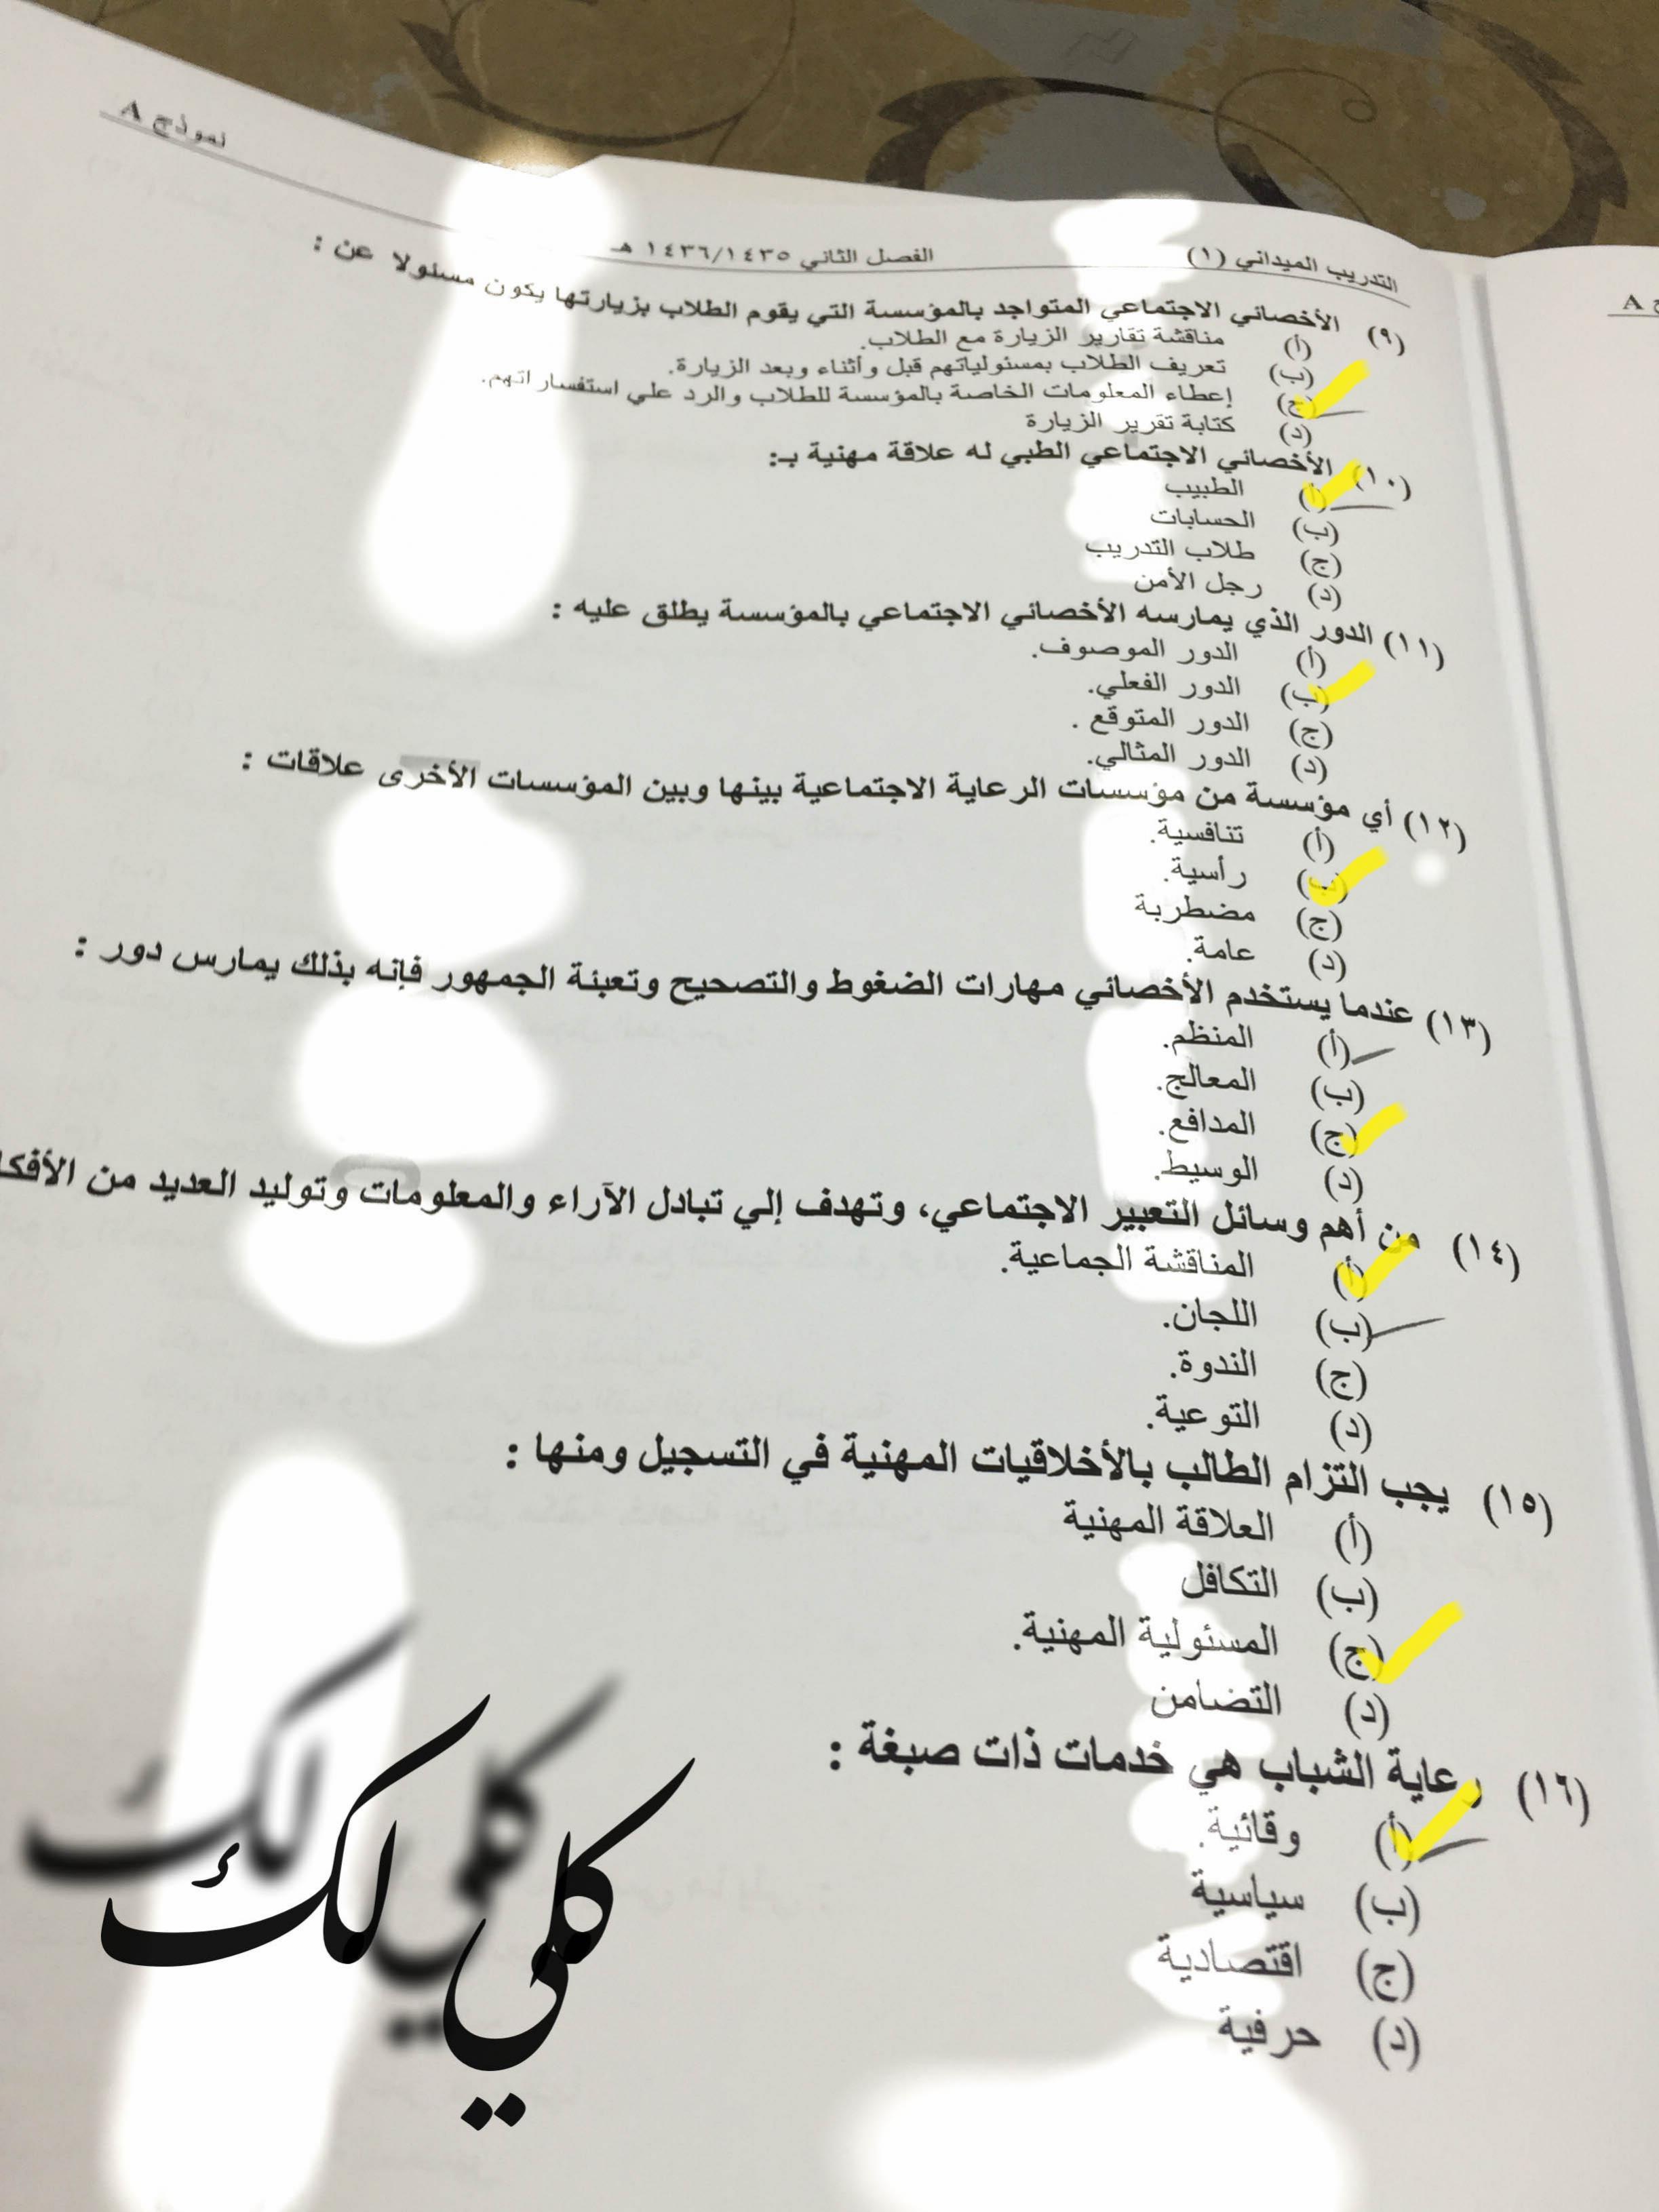 نموذج A
التدريب الميداني (١) الفصل الثاني ١٤٣٦/١٤٣٥ هـ
(٩) الأخصائي الاجتماعي المتواجد بالمؤسسة التي يقوم الطلاب بزيارتها يكون مسئولا عن :
(أ) مناقشة تقارير الزيارة مع الطلاب.
(ب) تعريف الطلاب بمسئولياتهم قبل وأثناء وبعد الزيارة.
(ج) إعطاء المعلومات الخاصة بالمؤسسة للطلاب والرد علي استفساراتهم.
(د) كتابة تقرير الزيارة
(١٠) الأخصائي الاجتماعي الطبي له علاقة مهنية بـ:
(أ) الطبيب
(ب) الحسابات
(ج) طلاب التدريب
(د) رجل الأمن
(١١) الدور الذي يمارسه الأخصائي الاجتماعي بالمؤسسة يطلق عليه :
(أ) الدور الموصوف.
(ب) الدور الفعلي.
(ج) الدور المتوقع .
(د) الدور المثالي.
(١٢) أي مؤسسة من مؤسسات الرعاية الاجتماعية بينها وبين المؤسسات الأخرى علاقات :
(أ) تنافسية.
(ب) رأسية.
(ج) مضطربة
(د) عامة.
(١٣) عندما يستخدم الأخصائي مهارات الضغوط والتصحيح وتعبئة الجمهور فإنه بذلك يمارس دور :
(أ) المنظم.
(ب) المعالج.
(ج) المدافع.
(د) الوسيط.
(١٤) من أهم وسائل التعبير الاجتماعي، وتهدف إلي تبادل الآراء والمعلومات وتوليد العديد من الأفكا
(أ) المناقشة الجماعية.
(ب) اللجان.
(ج) الندوة.
(د) التوعية.
(١٥) يجب التزام الطالب بالأخلاقيات المهنية في التسجيل ومنها :
(أ) العلاقة المهنية
(ب) التكافل
(ج) المسئولية المهنية.
(د) التضامن
(١٦) رعاية الشباب هي خدمات ذات صبغة :
(أ) وقائية.
(ب) سياسية
(ج) اقتصادية
(د) حرفية
كلي لك